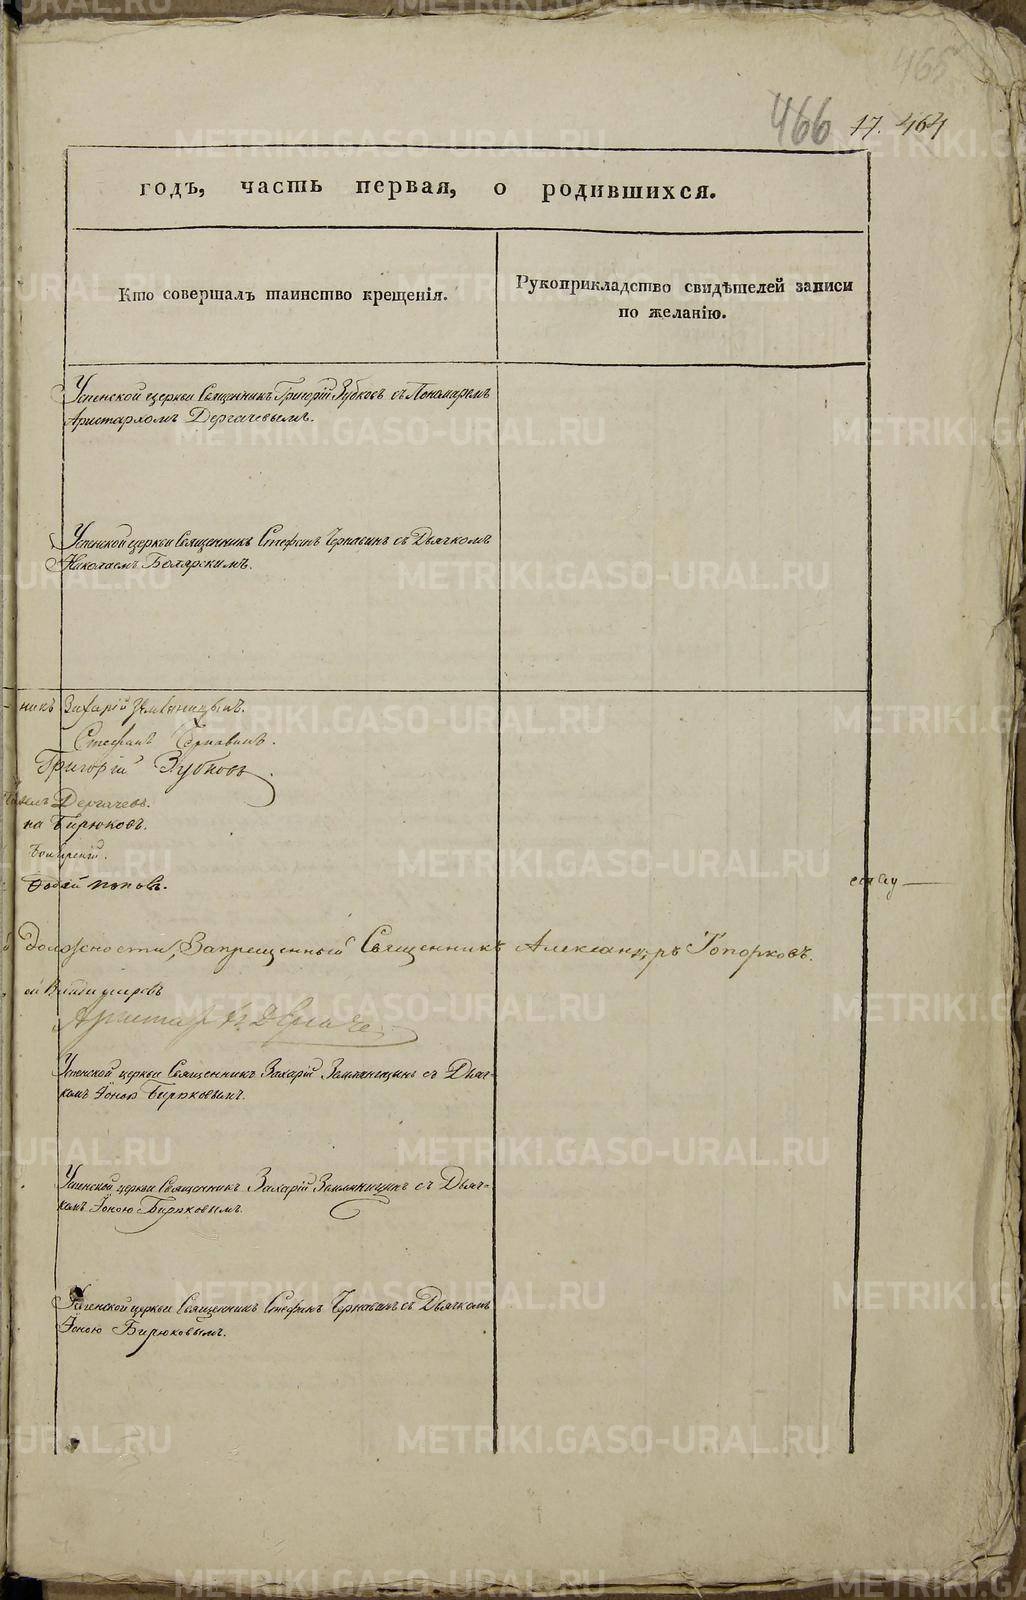 465
466 17. 464
годъ, часть первая, о родившихся.
Кто совершалъ таинство крещенія.
Рукоприкладство свидѣтелей записи
по желанію.
Успенской церкви Священникъ Григорій Зубковъ съ Пономаремъ
Аристархомъ Дергачевымъ.
Успенской церкви Священникъ Стефанъ Чернавинъ съ Дьячкомъ
Николаемъ Боярскимъ.
никъ Захарій Земляницынъ.
Стефанъ Чернавинъ.
Григорій Зубковъ.
Дергачевъ.
на Бирюковъ.
Поповъ.
должности, Запрещенный Священникъ Александръ Топорковъ.
Аристархъ Дергаче
Успенской церкви Священникъ Захарій Земляницынъ съ Дьяч-
комъ Іоною Бирюковымъ.
Успенской церкви Священникъ Захарій Земляницынъ съ Дьяч-
комъ Іоною Бирюковымъ.
Успенской церкви Священникъ Стефанъ Чернавинъ съ Дьячкомъ
Іоною Бирюковымъ.
METRIKI.GASO-URAL.RU